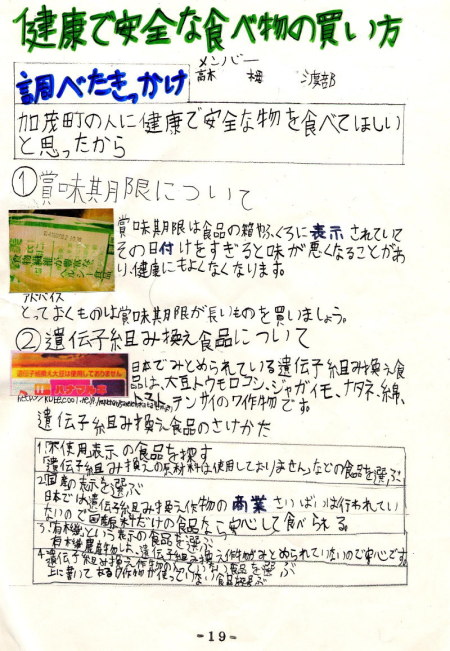 健康で安全な食べ物の買い方
メンバー
調べたきっかけ
渡部
加茂町の人に健康で安全な物を食べてほしい
と思ったから
①賞味期限について
賞味期限は食品の箱やふくろに表示されていて
その日付けをすぎると味が悪くなることがあ
り、健康にもよくなくなります。
アドバイス
とっておくものは賞味期限が長いものを買いましょう。
②遺伝子組み換え食品について
遺伝子組換え大豆は使用しておりません
日本でみとめられている遺伝子組み換え食
品は、大豆トウモロコシ、ジャガイモ、ナタネ、綿、
トマト、テンサイの7作物です。
遺伝子組み換え食品のさけかた
1.不使用表示の食品を探す
「遺伝子組み換えの原材料は使用しておりません」などの食品を選ぶ
2.国産の表示を選ぶ
日本では遺伝子組み換え作物の商業さいばいは行われてい
ないので国産原料だけの食品なら安心して食べられる。
3.「有機」という表示の食品を選ぶ
有機農産物は、遺伝子組み換え作物がみとめられていないので安心です。
4.遺伝子組み換え作物の入っていない食品を選ぶ
上に書いてある7作物が使っていない食品を選ぶ
-19-